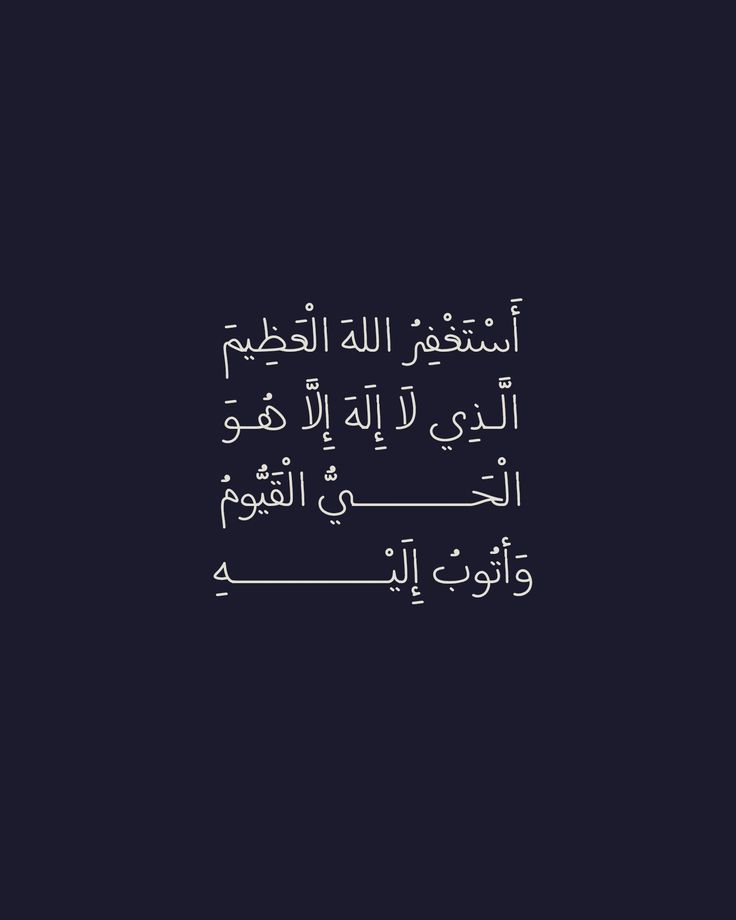 أَسْتَغْفِرُ اللهَ الْعَظِيمَ
الَّـذِي لَا إِلَهَ إِلَّا هُـوَ
الْحَـــــــــيُّ الْقَيُّومُ
وَأَتُوبُ إِلَيْـــــــــــــهِ